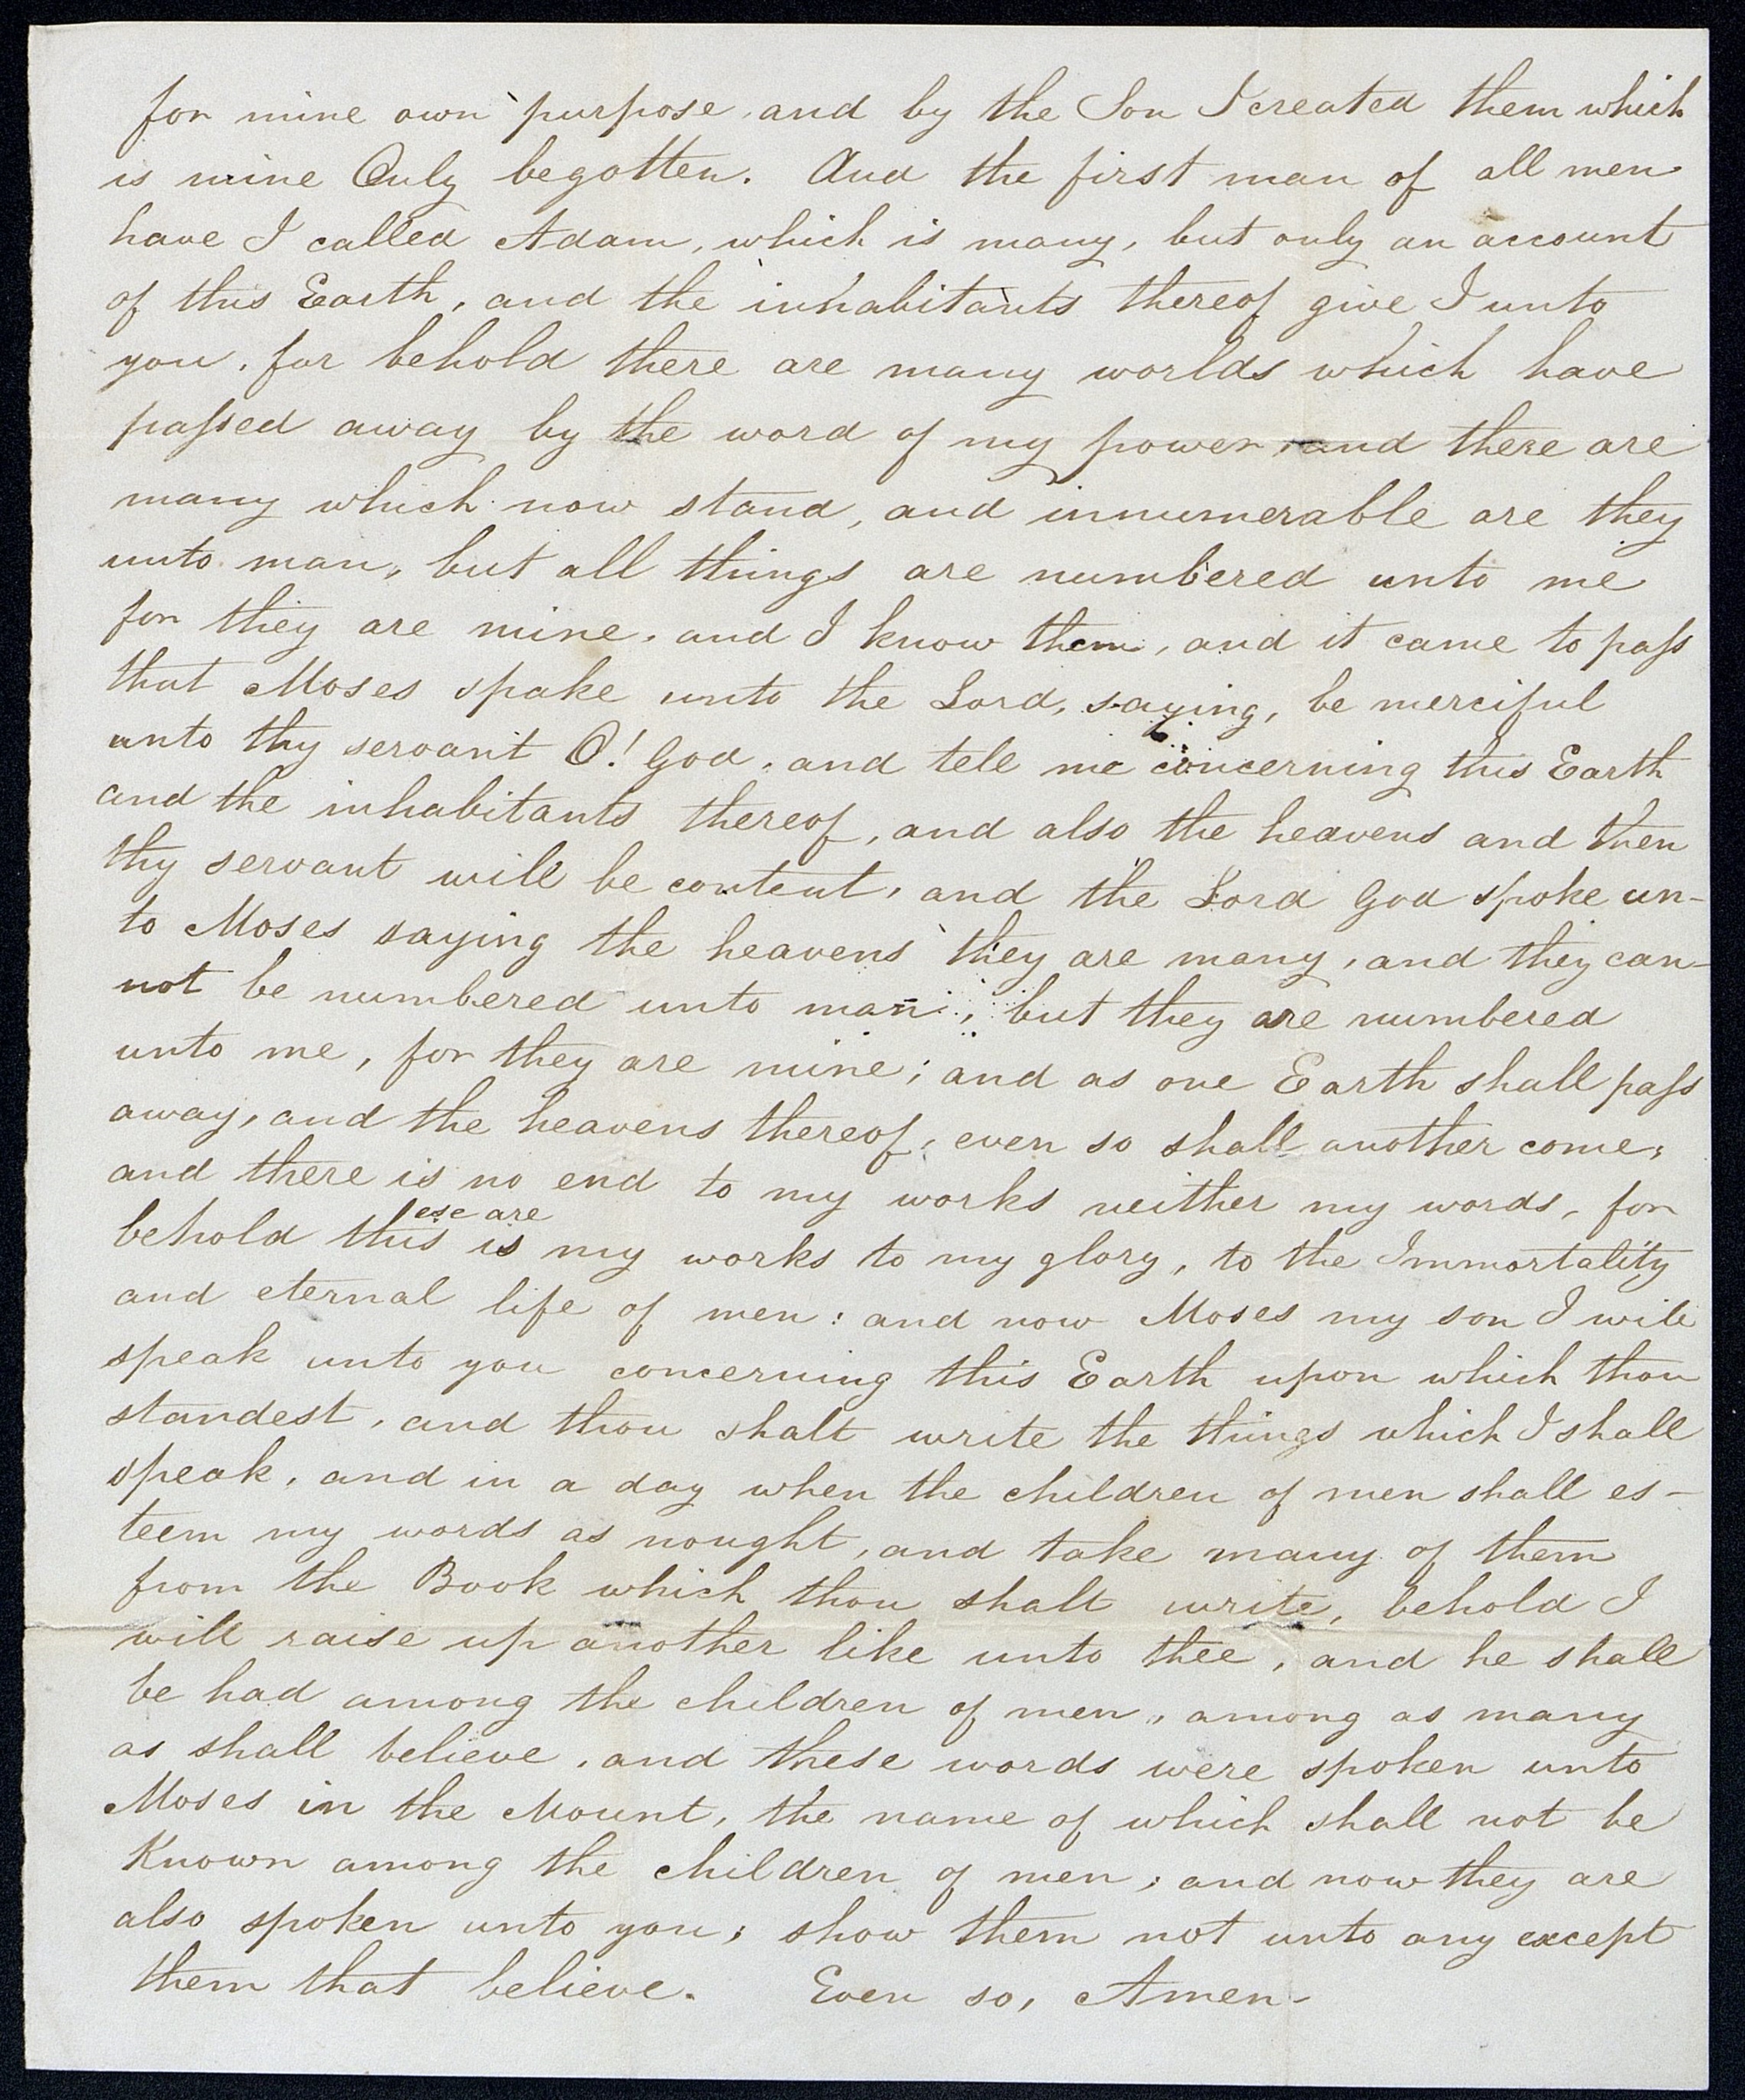 for mine own purpose, and by the Son I created them which
is mine Only begotten. And the first man of all men
have I called Adam, which is many, but only an account
of this Earth, and the inhabitants thereof give I unto
you, for behold there are many worlds which have
passed away by the word of my power, and there are
many which now stand, and innumerable are they
unto man, but all things are numbered unto me
for they are mine, and I know them, and it came to pass
that Moses spake unto the Lord, saying, be merciful
unto thy servant O! God, and tell me concerning this Earth
and the inhabitants thereof, and also the heavens and then
thy servant will be content, and the Lord God spoke un-
to Moses saying the heavens they are many, and they can-
not be numbered unto man, but they are numbered
unto me, for they are mine; and as one Earth shall pass
away, and the heavens thereof, even so shall another come,
and there is no end to my works neither my words, for
ese are
behold this is my works to my glory, to the Immortality
and eternal life of men: and now Moses my son I will
speak unto you concerning this Earth upon which thou
standest, and thou shalt write the things which I shall
speak, and in a day when the children of men shall es-
teem my words as nought, and take many of them
from the Book which thou shalt write, behold I
will raise up another like unto thee, and he shall
be had among the children of men, among as many
as shall believe, and these words were spoken unto
Moses in the Mount, the name of which shall not be
Known among the children of men, and now they are
also spoken unto you; show them not unto any except
them that believe. Even so, Amen-